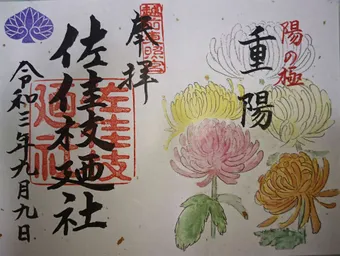 陽の極
重陽
越前東照宮
奉拝
佐佳枝廼社
佐佳枝
廼社
令和三年九月九日